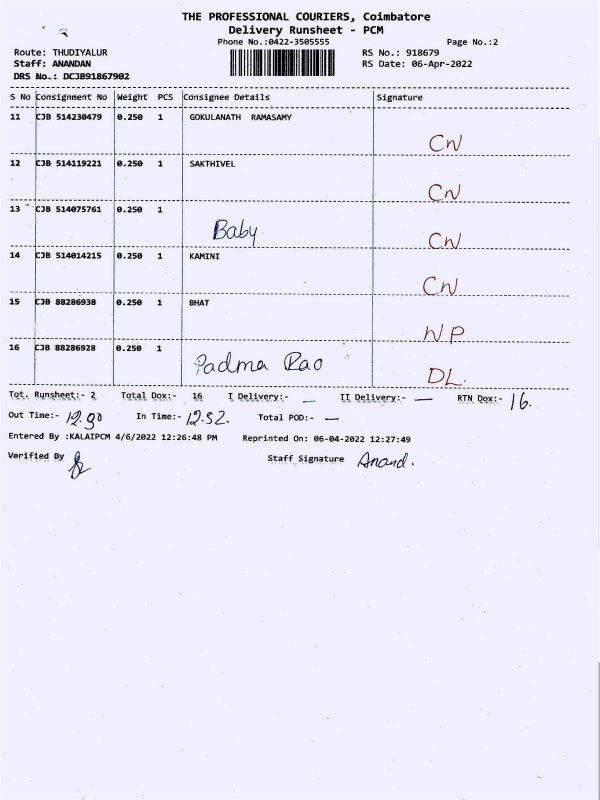 THE PROFESSIONAL COURIERS, Coimbatore
Delivery Runsheet - PCM
Phone No.:0422-3505555 Page No.:2
Route: THUDIYALUR RS No.: 918679
Staff: ANANDAN RS Date: 06-Apr-2022
DRS No.: DCJB91867902
S No Consignment No Weight PCS Consignee Details Signature
11 CJB 514230479 0.250 1 GOKULANATH RAMASAMY
CN
12 CJB 514119221 0.250 1 SAKTHIVEL
CN
13 CJB 514075761 0.250 1
Baby CN
14 CJB 514014215 0.250 1 KAMINI
CN
15 CJB 88286938 0.250 1 BHAT
NP
16 CJB 88286928 0.250 1
Padma Rao DL.
Tot. Runsheet:- 2 Total Dox:- 16 I Delivery:- — II Delivery:- — RTN Dox:- 16.
Out Time:- 12.90 In Time:- 12.52. Total POD:- —
Entered By :KALAIPCM 4/6/2022 12:26:48 PM Reprinted On: 06-04-2022 12:27:49
Verified By Staff Signature Anand.